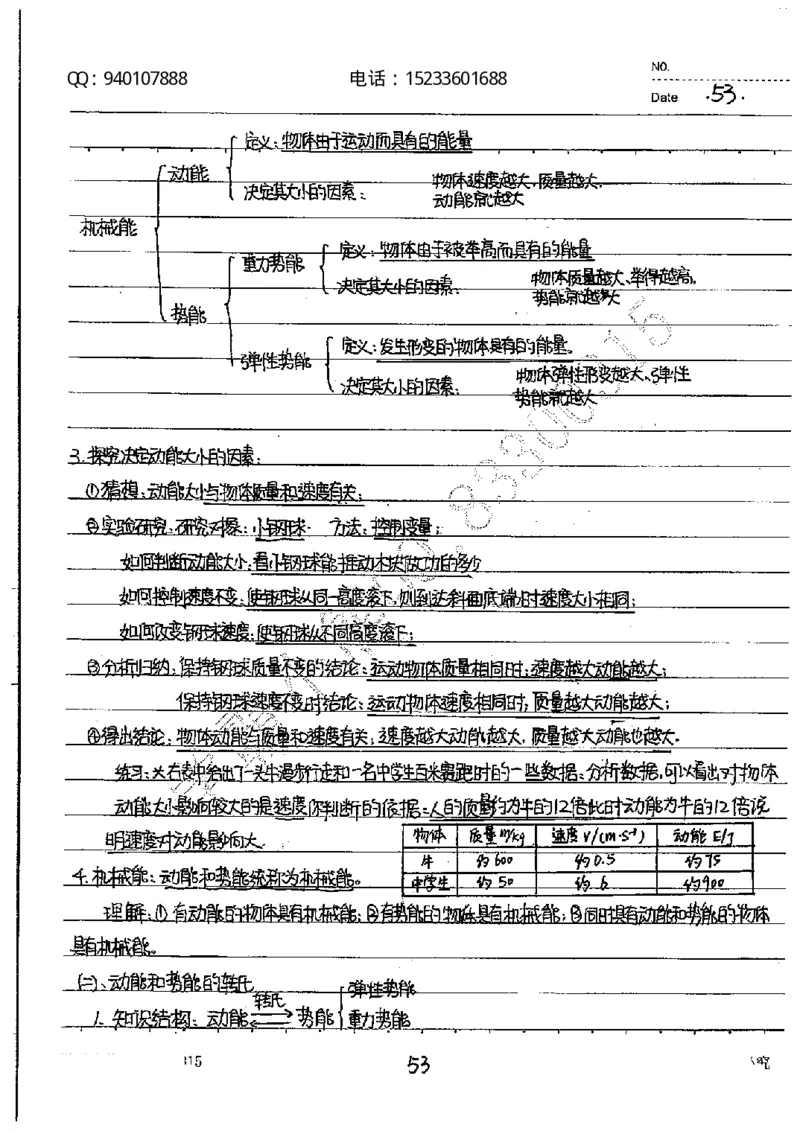 NO.
QQ：940107888 电话：15233601688
Date .53.
定义：物体由于运动而具有的能量
动能
决定其大小的因素： 物体速度越大、质量越大,
动能就越大
机械能
重力势能 定义：物体由于被举高而具有的能量
决定其大小的因素： 物体质量越大、举得越高,
势能就越大
势能
弹性势能 定义：发生形变的物体具有的能量。
决定其大小的因素： 物体弹性形变越大、弹性
势能就越大
3.探究决定动能大小的因素：
①猜想：动能大小与物体质量和速度有关；
②实验研究：研究对象：小钢球 方法：控制变量；
如何判断动能大小：看小钢球能推动木块做功的多少
如何控制速度不变：使钢球从同一高度滚下,则到达斜面底端时速度大小相同；
如何改变钢球速度：使钢球从不同高度滚下；
③分析归纳：保持钢球质量不变的结论：运动物体质量相同时；速度越大动能越大；
保持钢球速度不变时结论：运动物体速度相同时；质量越大动能越大；
④得出结论：物体动能与质量和速度有关；速度越大动能越大,质量越大动能也越大。
练习：☆右表中给出了一头牛漫步行走和一名中学生百米赛跑时的一些数据：分析数据,可以看出对物体
动能大小影响较大的是速度你判断的依据：人的质量约为牛的1/12倍此时动能为牛的12倍说
明速度对动能影响大。
物体 质量 m/kg 速度 v/(m·s⁻¹) 动能 E/J
牛 约600 约0.5 约75
中学生 约50 约6 约900
4.机械能：动能和势能统称为机械能。
理解：①有动能的物体具有机械能；②有势能的物体具有机械能；③同时具有动能和势能的物体
具有机械能。
(二)、动能和势能的转化
1.知识结构：动能 转化 势能 弹性势能
重力势能
53